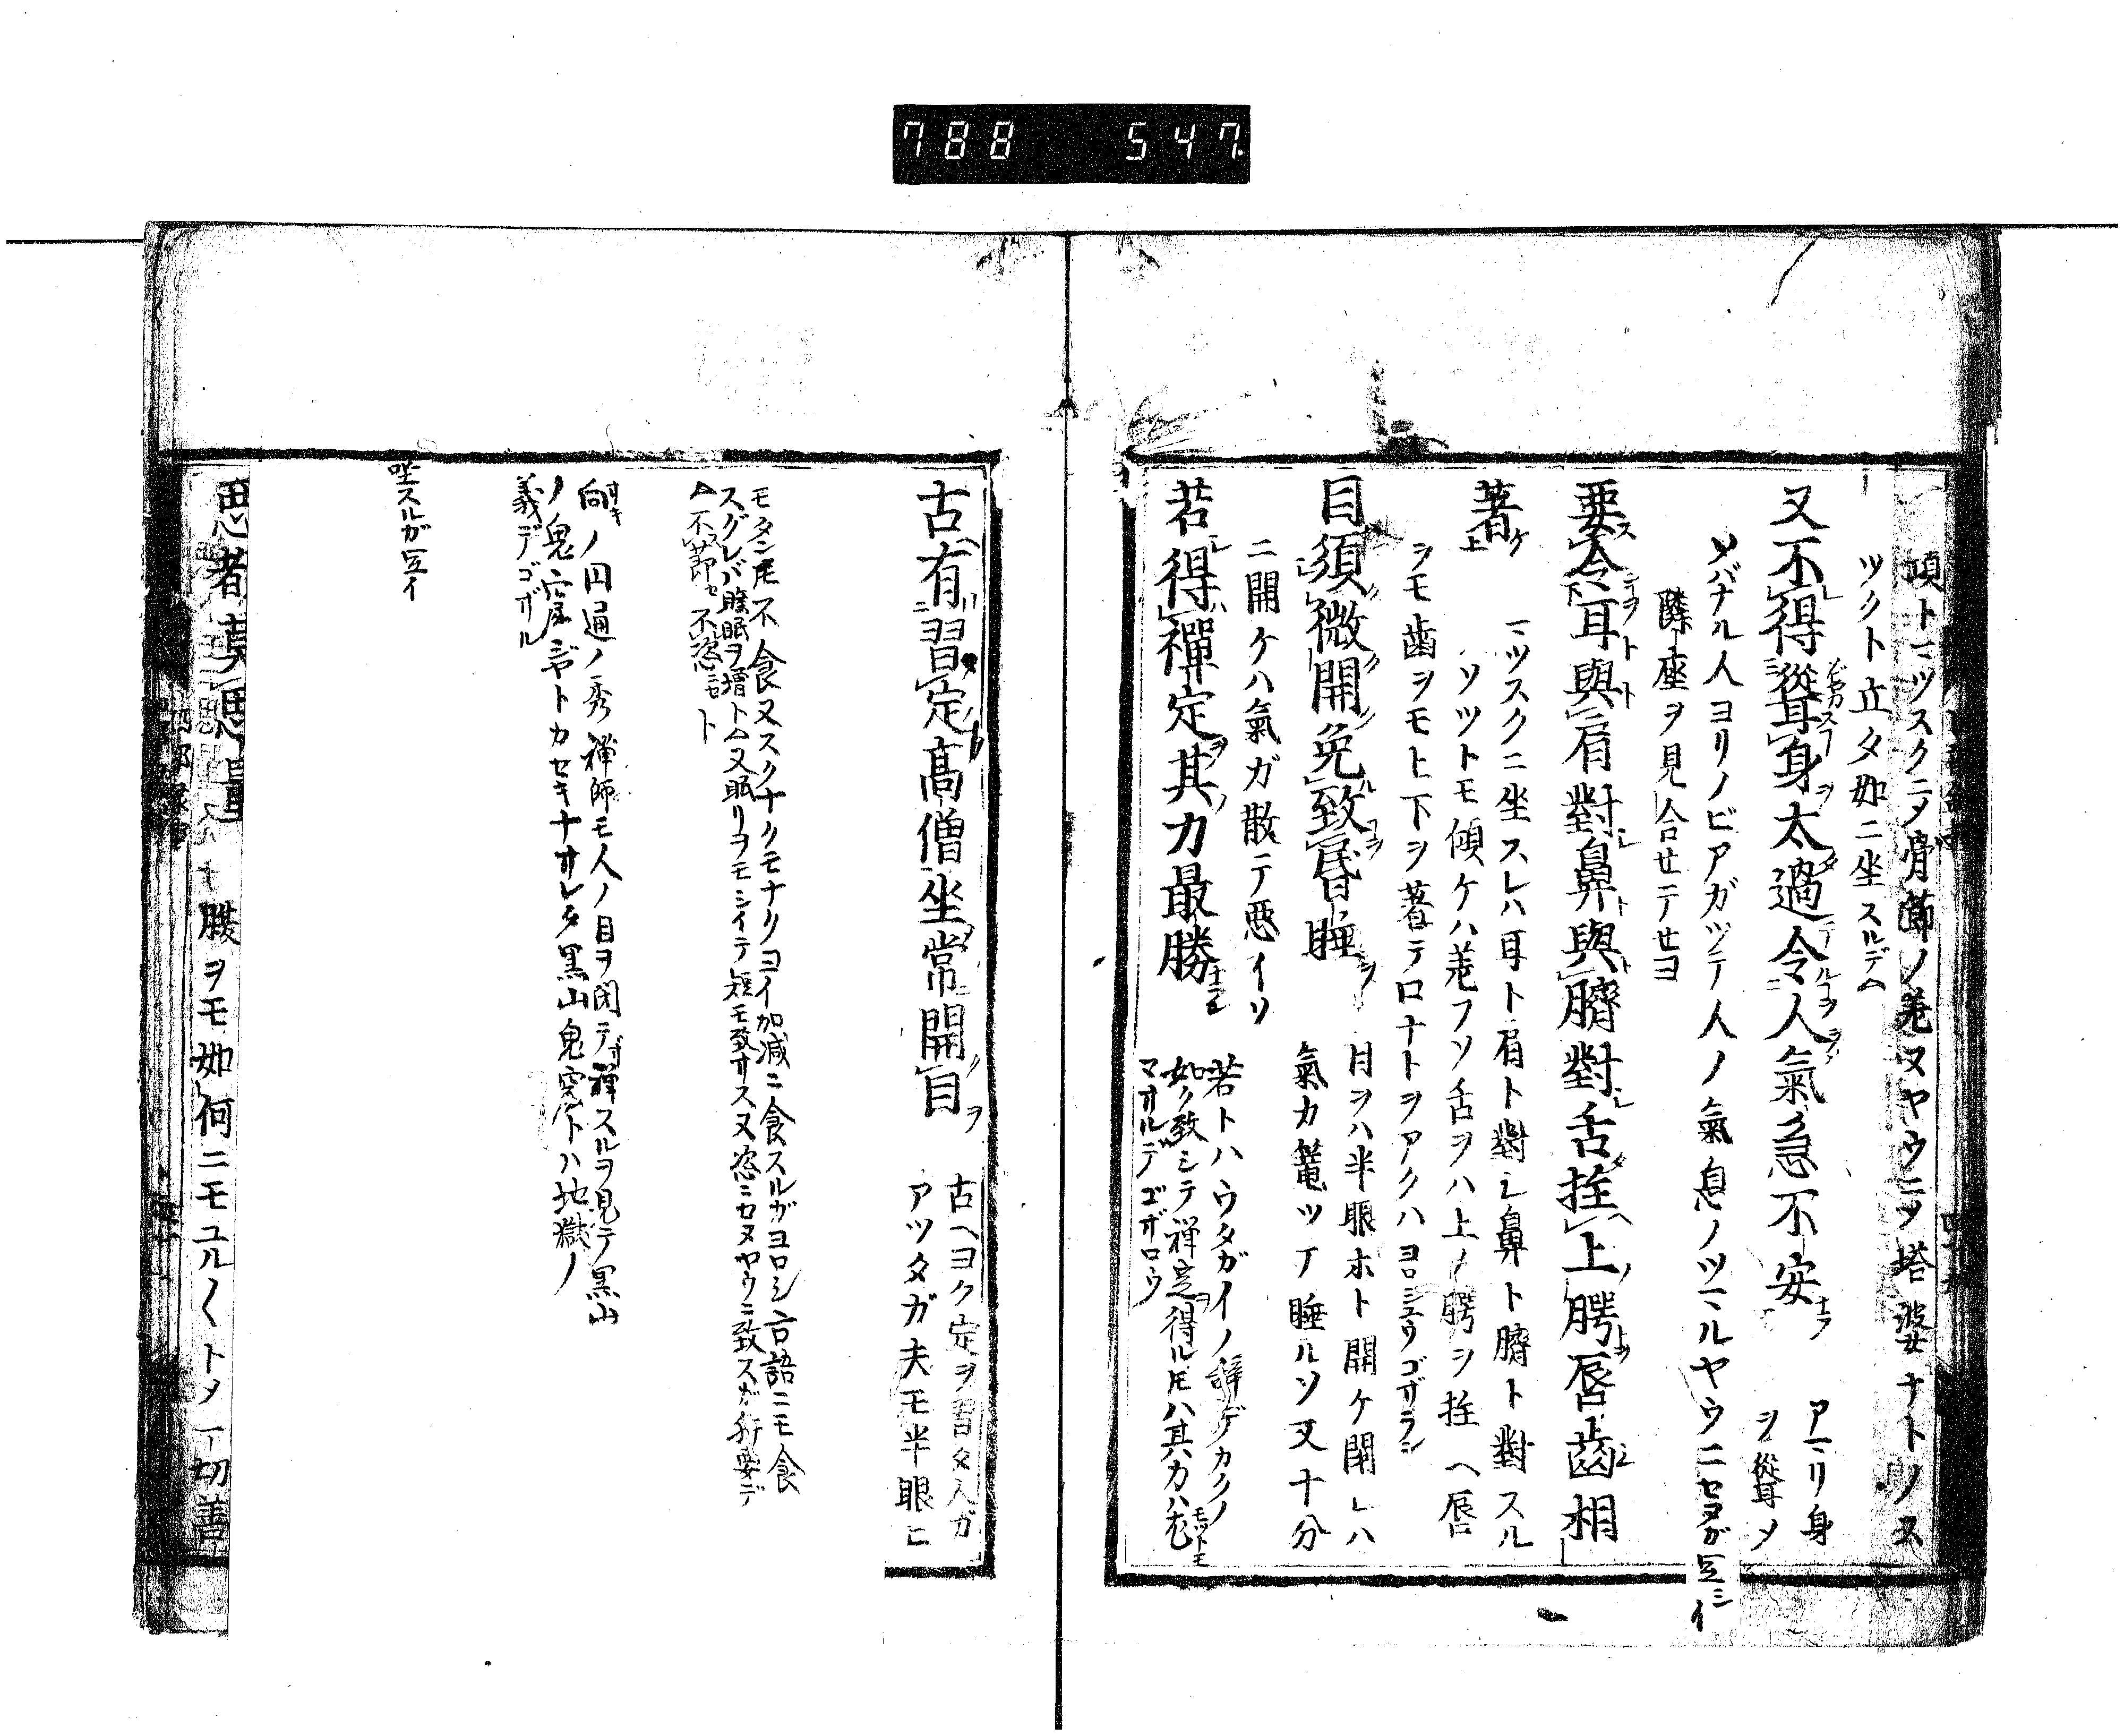 788 547
項トマツスクニメ骨節ノ差ヌヤウニツ塔婆ナトノス
ツクト立タ如ニ坐スルデヘ
又不得聳身太過令人氣急不安
アマリ身
ヲ聳メ
ソバナル人ヨリノビアガツテ人ノ氣息ノツマルヤウニセヌガ宜シイ
隣座ヲ見合セテセヨ
要令耳與肩對鼻與臍對舌拄上腭唇齒相
マツスクニ坐スレハ耳ト肩ト對シ鼻ト臍ト對スル
ソツトモ傾ケハ差フソ舌ヲハ上ノ腭ヲ拄ヘ唇
著
ヲモ齒ヲモ上下ヲ著テロナトヲアクハヨロシュウゴザラヌ
目須微開免致昏睡
目ヲハ半眼ホト開ケ閉レハ
氣カ篭ツテ睡ルソ又十分
ニ開ケハ氣ガ散テ悪イソ
若得禪定其力最勝
若トハウタガイノ辞デカクノ
如ク致シテ禅定ヲ得ル尾ハ其力ハ尤
マサルデゴザロウ
古有習定高僧坐常開目
古ヘヨク定ヲ習タ人ガ
アツタガ夫モ半眼ニ
モタン尾不食又スクナクモナクヨイ加減ニ食スルガヨロシ言語ニモ食
スグレバ睡眠ヲ増トム又眠リヲモシイテ短モ致サス又恣ニセヌヤウニ致スガ肝要デ
ム不節セ不恣ニセト
向ノ円通ノ秀禅師モ人ノ目ヲ閉テ坐禅スルヲ見テ黒山
ノ鬼窟ヂヤトカセキナサレタ黒山鬼窟下ハ地獄ノ
義デゴザル
坐スルガ宜イ
思者莫思量
腹ヲモ如何ニモユル〱トメ一切善